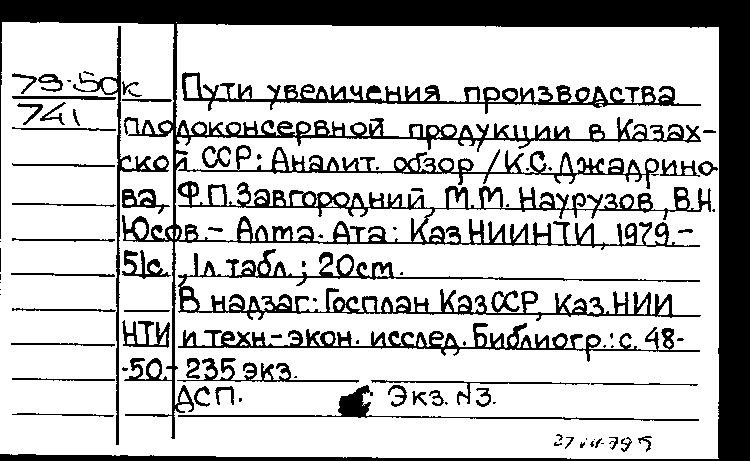 79-50к Пути увеличения производства
741 плодоконсервной продукции в Казах-
ской ССР: Аналит. обзор / К.С. Джадрино-
ва, Ф.П. Завгородний, М.М. Наурузов, В.Н.
Юсов.- Алма-Ата: КазНИИНТИ, 1979.-
51с., 1л. табл.; 20cm.
В надзаг: Госплан КазССР, Каз.НИИ
НТИ и техн.-экон. исслед. Библиогр.: с. 48-
-50.- 235 экз.
ДСП. Экз. N3.